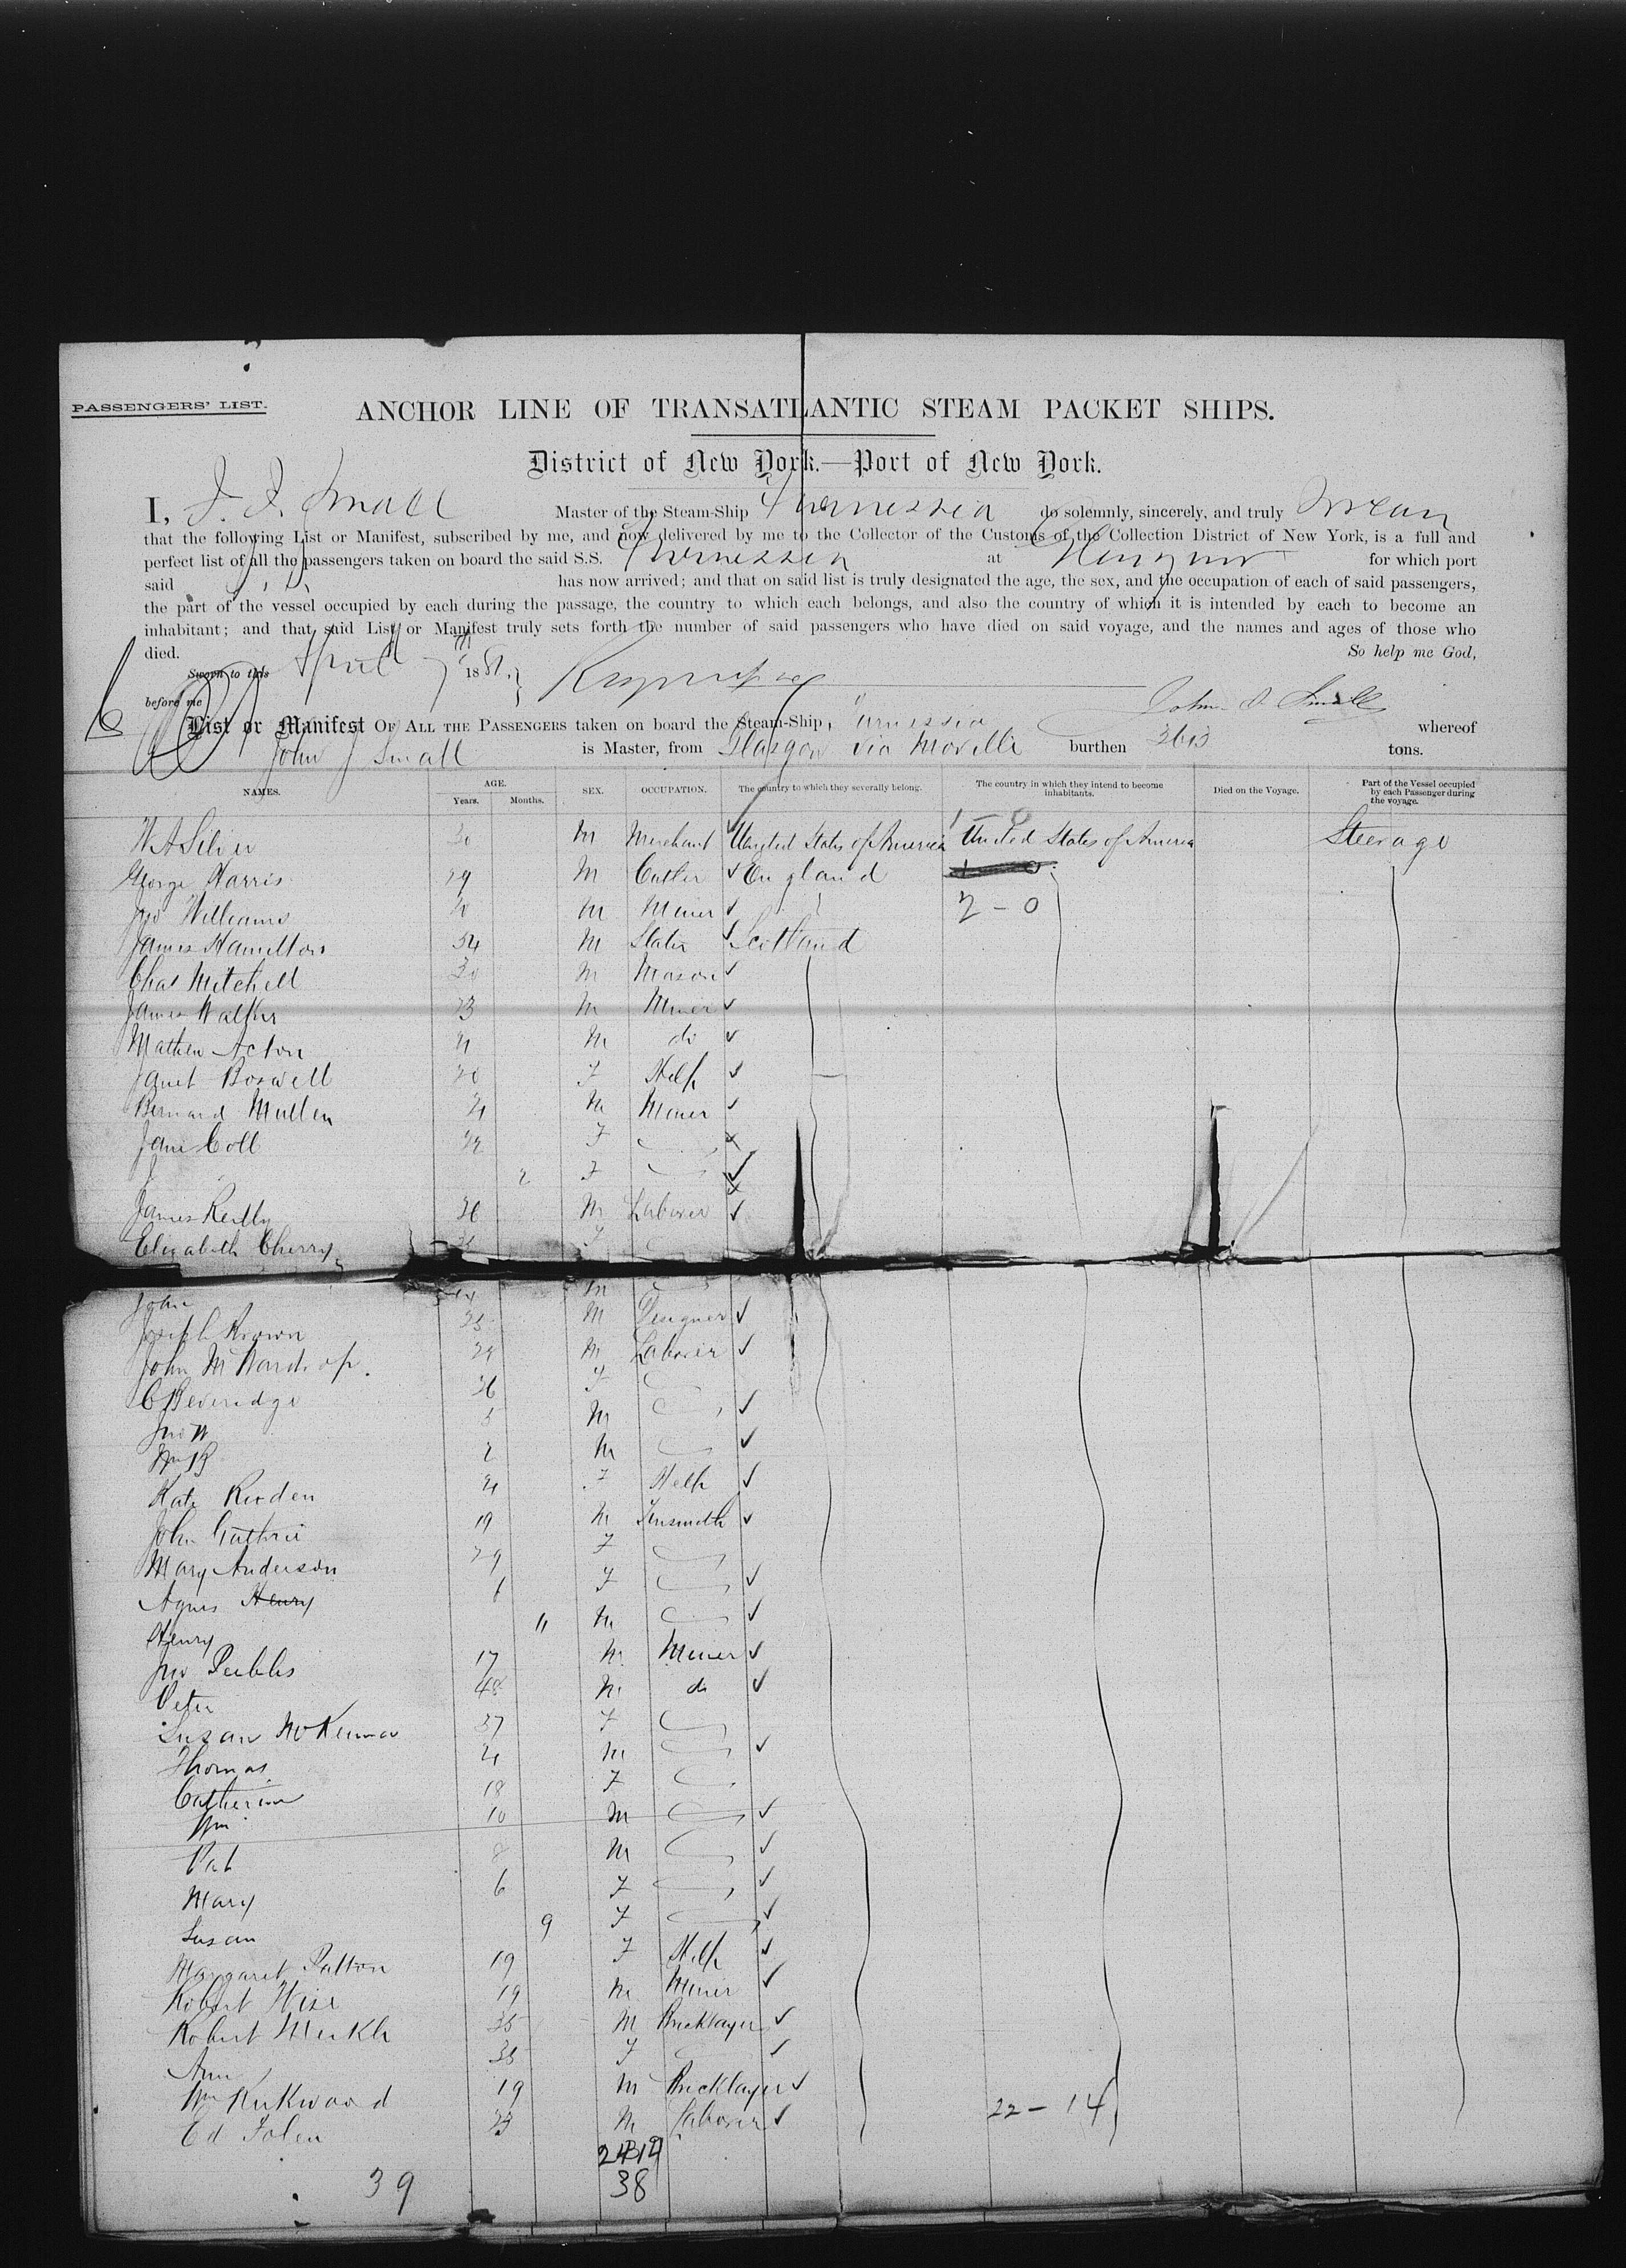 PASSENGERS' LIST.
ANCHOR LINE OF TRANSATLANTIC STEAM PACKET SHIPS.
District of New York.—Port of New York.
I, J. J. Small Master of the Steam-Ship Furnessia do solemnly, sincerely, and truly Swear
that the following List or Manifest, subscribed by me, and now delivered by me to the Collector of the Customs of the Collection District of New York, is a full and
perfect list of all the passengers taken on board the said S.S. Furnessia at for which port
said has now arrived; and that on said list is truly designated the age, the sex, and the occupation of each of said passengers,
the part of the vessel occupied by each during the passage, the country to which each belongs, and also the country of which it is intended by each to become an
inhabitant; and that said List or Manifest truly sets forth the number of said passengers who have died on said voyage, and the names and ages of those who
died. So help me God,
Sworn to this April 7th 1881.
before me John J Small
List or Manifest OF ALL THE PASSENGERS taken on board the Steam-Ship, Furnessia whereof
John J Small is Master, from Glasgow via Moville burthen 3613 tons.
NAMES. AGE. SEX. OCCUPATION. The country to which they severally belong. The country in which they intend to become inhabitants. Died on the Voyage. Part of the Vessel occupied by each Passenger during the voyage.
Years. Months.
W A 30 M Merchant United States of America United States of America Steerage
George Harris 29 M Cutler England
Jno Williams M Miner 2 - 0
James Hamilton 34 M Slater Scotland
Chas Mitchell 30 M Mason
James Walker 23 M Miner
Mathew Acton 21 M do
Janet Boswell 20 F Help
Bernard Mullen 21 M Miner
Jane Coll 22 F
2 F
James Reilly 26 M Laborer
Elizabeth Cherry F
John M
Joseph Brown 35 M Designer
John M Wardrop. 24 M Laborer
C Beveridge 36 F
Jno W 3 M
Wm B 2 M
Kate 21 F Help
John Guthrie 19 M Tinsmith
Mary Anderson 29 F
Agnes Henry 1 F
Henry 11 M
Jno Peebles 17 M Miner
Peter 48 M do
Susan McKenna 37 F
Thomas 21 M
Catherine 18 F
Wm 10 M
Pat 8 M
Mary 6 F
Susan 9 F
Margaret Patton 19 F Help
Robert Wise 19 M Miner
Robert Meikle 35 M Bricklayer
Ann 35 F
Wm Kirkwood 19 M Bricklayer
Ed 23 M Laborer 22 - 14
39 38